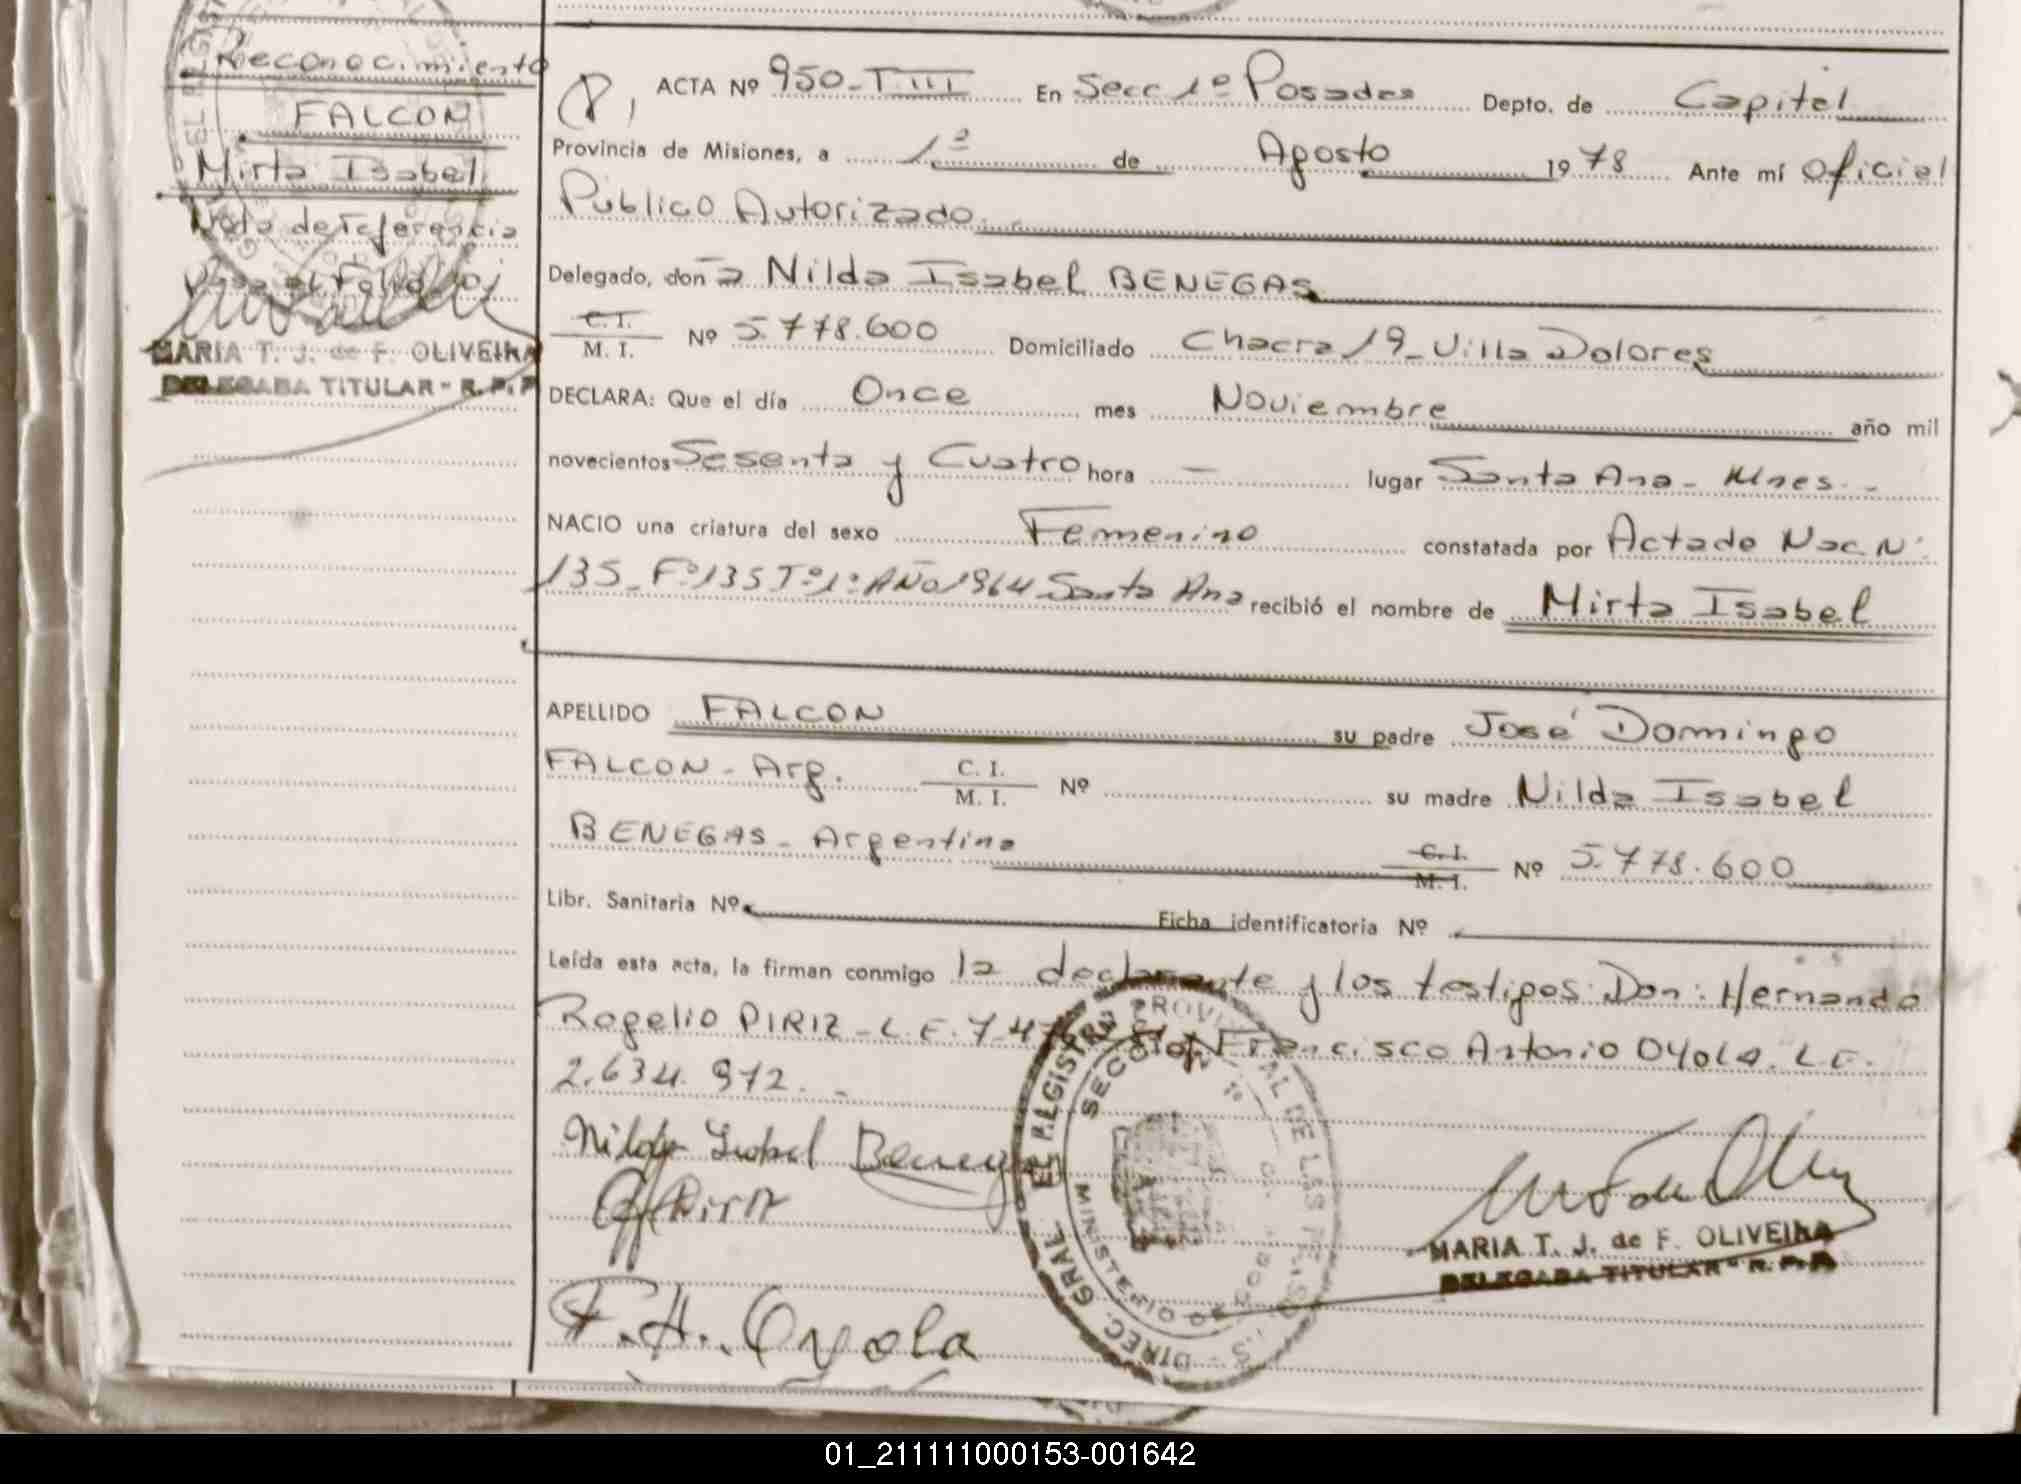 Reconocimiento
FALCON
Mirta Isabel
Nota de referencia
MARIA T. J. de F. OLIVEIRA
DELEGADA TITULAR - R. P. P.
ACTA Nº 950-T III En Secc 1º Posadas Depto. de Capital
Provincia de Misiones, a 1º de Agosto 1978 Ante mí Oficial
Público Autorizado
Delegado, doña Nilda Isabel BENEGAS
C. I.
M. I. Nº 5.778.600 Domiciliado Chacra 19 - Villa Dolores
DECLARA: Que el día Once mes Noviembre año mil
novecientos Sesenta y Cuatro hora — lugar Santa Ana - Mnes. -
NACIO una criatura del sexo Femenino constatada por Acta de Nac Nº
135 - Fº 135 Tº 1º AÑO 1964 Santa Ana recibió el nombre de Mirta Isabel
APELLIDO FALCON su padre José Domingo
FALCON - Arg. C. I. M. I. Nº su madre Nilda Isabel
BENEGAS - Argentina C. I. M. I. Nº 5.778.600
Libr. Sanitaria Nº Ficha identificatoria Nº
Leída esta acta, la firman conmigo la declarante y los testigos: Don: Hernando
Rogelio PIRIZ - L.E. 7.4 Francisco Antonio OYOLA. L.E.
2.634.972. -
Nilda Isabel Beneg
Piriz
F. A. Oyola
MARIA T. J. de F. OLIVEIRA
DELEGADA TITULAR - R. P. P.
01_211111000153-001642